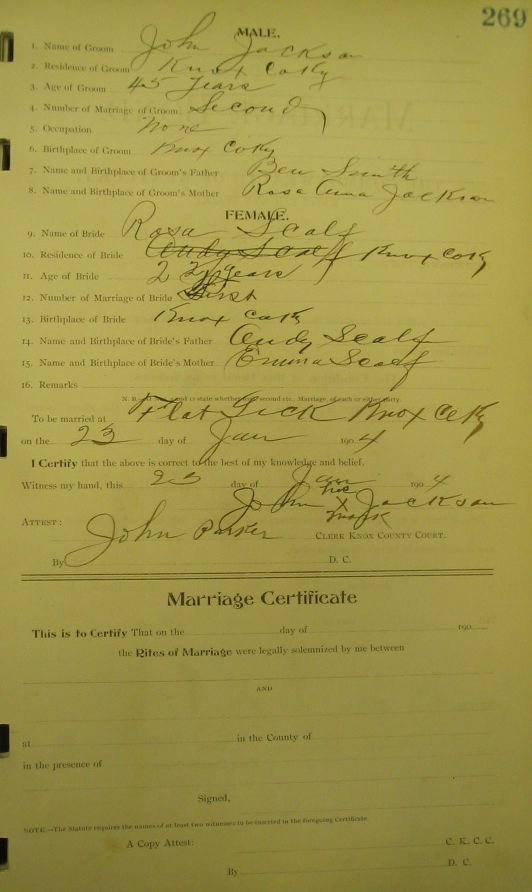 269
MALE.
1. Name of Groom John Jackson
2. Residence of Groom Knox Co Ky
3. Age of Groom 45 Years
4. Number of Marriage of Groom Second
5. Occupation None
6. Birthplace of Groom Knox Co Ky
7. Name and Birthplace of Groom's Father Ben Smith
8. Name and Birthplace of Groom's Mother Rosa Anna Jackson
FEMALE.
9. Name of Bride Rosa Scalf
10. Residence of Bride Andy Scalf Knox Co Ky
11. Age of Bride 22 years
12. Number of Marriage of Bride First
13. Birthplace of Bride Knox Co Ky
14. Name and Birthplace of Bride's Father Andy Scalf
15. Name and Birthplace of Bride's Mother Emma Scalf
16. Remarks
state whether second etc., Marriage, of each or either party.
To be married at Flat Lick Knox Co Ky
on the 23 day of Jan 190 4
I Certify that the above is correct to the best of my knowledge and belief.
Witness my hand, this 23 day of Jan 190 4
his
John X Jackson
mark
ATTEST: John Parker CLERK KNOX COUNTY COURT.
By D. C.
Marriage Certificate
This is to Certify That on the day of 190
the Rites of Marriage were legally solemnized by me between
AND
at in the County of
in the presence of
Signed,
NOTE.—The Statute requires the names of at least two witnesses to be inserted in the foregoing Certificate.
A Copy Attest: C. K. C. C.
By D. C.